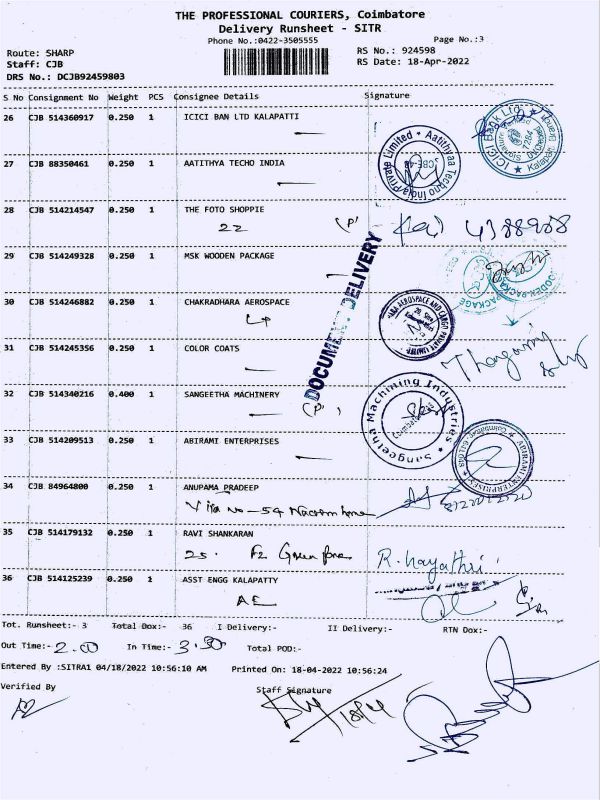 THE PROFESSIONAL COURIERS, Coimbatore
Delivery Runsheet - SITR
Phone No.:0422-3505555
Page No.:3
Route: SHARP
RS No.: 924598
Staff: CJB
RS Date: 18-Apr-2022
DRS No.: DCJB92459803
S No Consignment No Weight PCS Consignee Details Signature
26 CJB 514360917 0.250 1 ICICI BAN LTD KALAPATTI
27 CJB 88350461 0.250 1 AATITHYA TECHO INDIA
28 CJB 514214547 0.250 1 THE FOTO SHOPPIE
22 (P)
29 CJB 514249328 0.250 1 MSK WOODEN PACKAGE
30 CJB 514246882 0.250 1 CHAKRADHARA AEROSPACE
31 CJB 514245356 0.250 1 COLOR COATS
32 CJB 514340216 0.400 1 SANGEETHA MACHINERY
(P)
33 CJB 514209513 0.250 1 ABIRAMI ENTERPRISES
34 CJB 84964800 0.250 1 ANUPAMA PRADEEP
35 CJB 514179132 0.250 1 RAVI SHANKARAN
25. F2
36 CJB 514125239 0.250 1 ASST ENGG KALAPATTY
AE
DOCUMENT DELIVERY
ICICI Bank Ltd
Aatithyaa Techno India Private Limited
Sangeetha Machining Industries
Coimbatore
ABIRAMI ENTERPRISES
Tot. Runsheet:- 3 Total Dox:- 36 I Delivery:- II Delivery:- RTN Dox:-
Out Time:- 2.00 In Time:- 3.30 Total POD:-
Entered By :SITRA1 04/18/2022 10:56:10 AM Printed On: 18-04-2022 10:56:24
Verified By Staff Signature
18/4